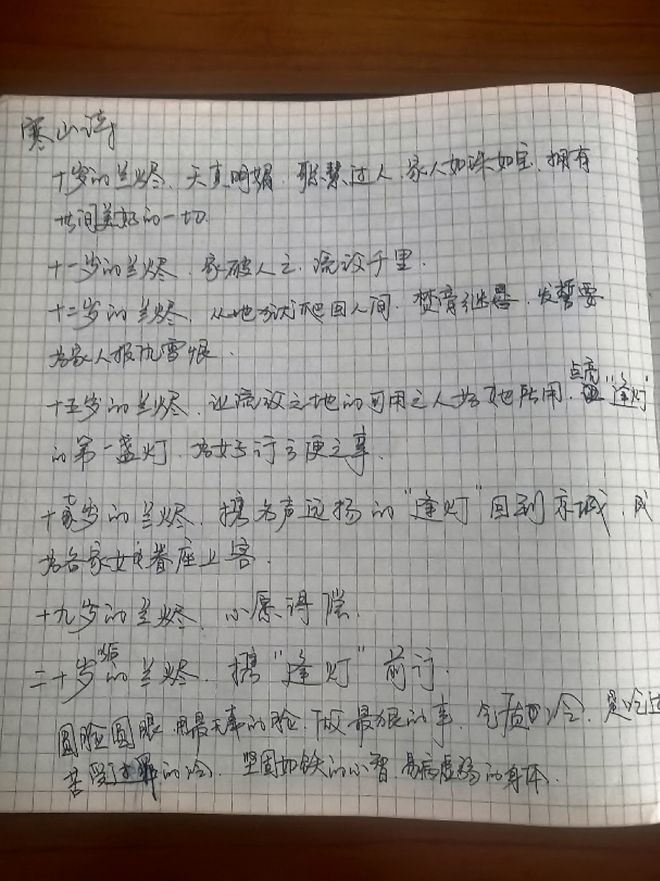 寒山诗
十岁的兰烬、天真明媚、聪慧过人、家人如珠如宝、拥有
世间美好的一切.
十一岁的兰烬、家破人亡、流放千里.
十二岁的兰烬、从地狱爬回人间、焚膏继晷、发誓要
为家人报仇雪恨.
十五岁的兰烬、让流放之地的可用之人为她所用、点亮“逢灯”
的第一盏灯、为女子行方便之事.
十岁的兰烬、携名声远扬的“逢灯”回到京城、成
为各家女眷座上客.
十九岁的兰烬、心愿得偿.
二十岁后的兰烬、携“逢灯”前行.
圆脸圆眼、用最无辜的脸、做最狠的事、气质冷、是吃过
苦受过罪的冷、坚固如铁的心智、易病虚弱的身体.